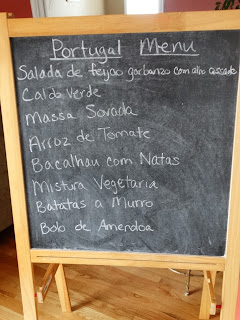 Portugal Menu
Salada de feijao garbanzo com atro cascade
Caldo Verde
Massa Sovada
Arroz de Tomate
Bacalhau com Natas
Mistura Vegetaria
Batatas a Murro
Bolo de Amendoa